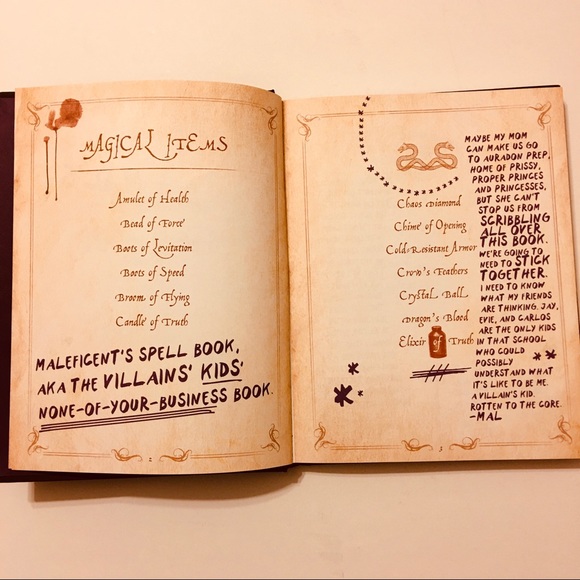 MAGICAL ITEMS
Amulet of Health
Bead of Force
Boots of Levitation
Boots of Speed
Broom of Flying
Candle of Truth
MALEFICENT'S SPELL BOOK,
AKA THE VILLAINS' KIDS'
NONE-OF-YOUR-BUSINESS BOOK.
2
Chaos Diamond
Chime of Opening
Cold-Resistant Armor
Crow's Feathers
Crystal Ball
Dragon's Blood
Elixir of Truth
MAYBE MY MOM
CAN MAKE US GO
TO AURADON PREP,
HOME OF PRISSY,
PROPER PRINCES
AND PRINCESSES,
BUT SHE CAN'T
STOP US FROM
SCRIBBLING
ALL OVER
THIS BOOK.
WE'RE GOING TO
NEED TO STICK
TOGETHER.
I NEED TO KNOW
WHAT MY FRIENDS
ARE THINKING. JAY,
EVIE, AND CARLOS
ARE THE ONLY KIDS
IN THAT SCHOOL
WHO COULD
POSSIBLY
UNDERSTAND WHAT
IT'S LIKE TO BE ME.
A VILLAIN'S KID.
ROTTEN TO THE CORE.
-MAL
3